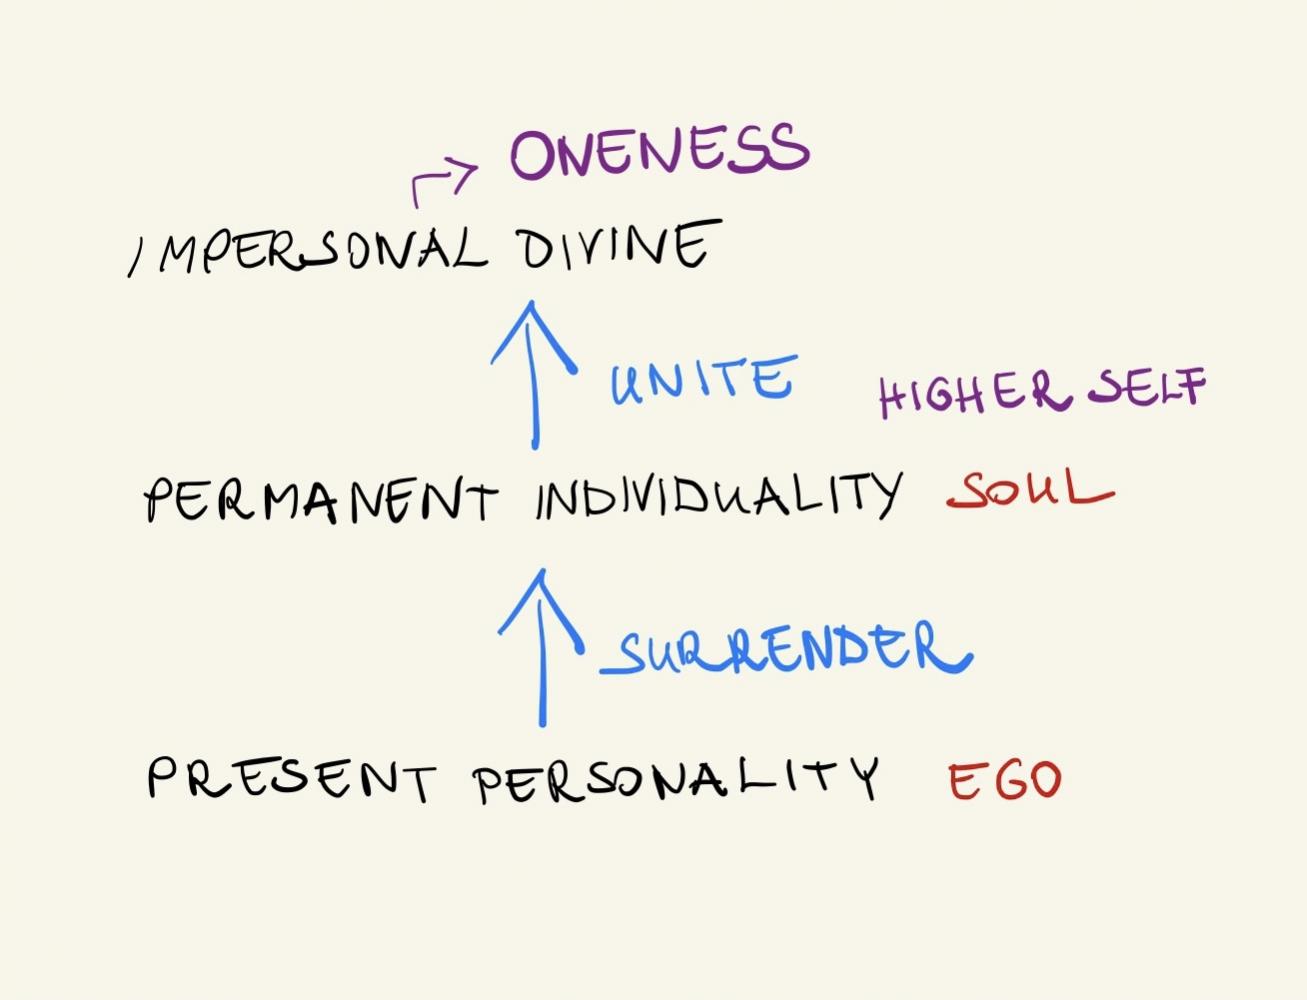 ONENESS
IMPERSONAL DIVINE
UNITE
HIGHER SELF
PERMANENT INDIVIDUALITY SOUL
SURRENDER
PRESENT PERSONALITY EGO